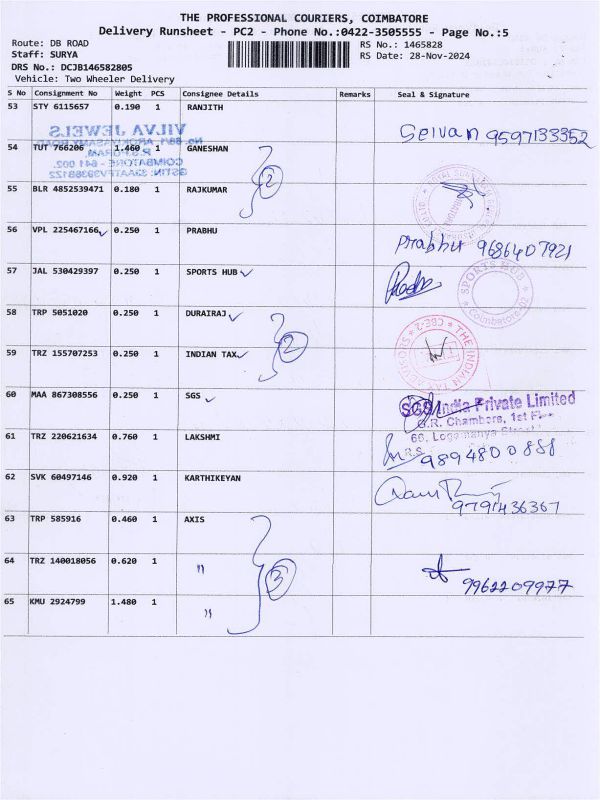 THE PROFESSIONAL COURIERS, COIMBATORE
Delivery Runsheet - PC2 - Phone No.:0422-3505555 - Page No.:5
Route: DB ROAD
RS No.: 1465828
Staff: SURYA
RS Date: 28-Nov-2024
DRS No.: DCJB146582805
Vehicle: Two Wheeler Delivery
S No Consignment No Weight PCS Consignee Details Remarks Seal & Signature
53 STY 6115657 0.190 1 RANJITH
Selvan 9597133352
VILVA JEWELS
54 TUT 766206 1.460 1 GANESHAN
2
COIMBATORE - 641 002.
55 BLR 4852539471 0.180 1 RAJKUMAR
56 VPL 225467166 0.250 1 PRABHU
Prabhu 9686407921
57 JAL 530429397 0.250 1 SPORTS HUB
SPORTS HUB
Coimbatore-02
58 TRP 5051020 0.250 1 DURAIRAJ
2
THE INDIAN TAX ADVISORS
CBE-2
59 TRZ 155707253 0.250 1 INDIAN TAX
60 MAA 867308556 0.250 1 SGS
SGS India Private Limited
G.R. Chambers, 1st
66,
R.S.
61 TRZ 220621634 0.760 1 LAKSHMI
9894800888
62 SVK 60497146 0.920 1 KARTHIKEYAN
9791436367
63 TRP 585916 0.460 1 AXIS
64 TRZ 140018056 0.620 1 "
3
9962209977
65 KMU 2924799 1.480 1 "